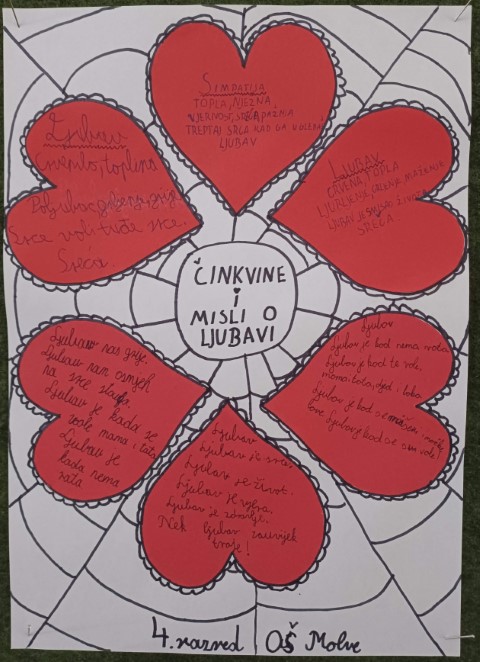 SIMPATIJA
TOPLA, NJEŽNA
VJERNOST, SREĆA, PAŽNJA
TREPTAJ SRCA KAD GA VOLIM
LJUBAV
Ljubav
Crvenilo, toplina
Poljubac, grljenje,
Srce voli tvoje srce.
Sreća.
LJUBAV
CRVENA, TOPLA
LJUBLJENJE, GRLJENJE, MAŽENJE
LJUBAV JE SMISAO ŽIVOTA
SREĆA.
ČINKVINE
i
MISLI O
LJUBAVI
Ljubav nas grije.
Ljubav nam osmijeh
na srce
Ljubav je kada se
vole mama i tata
Ljubav je
kada nema
rata
Ljubav
Ljubav je kad nema rata
Ljubav je kad te vole
mama, tata, djed i baka
Ljubav je kad se
Ljubav je kad se svi vole!
Ljubav
Ljubav je srce.
Ljubav je život.
Ljubav je vjera.
Ljubav je zdravlje.
Nek ljubav zauvijek
traje!
4. razred OŠ Molve